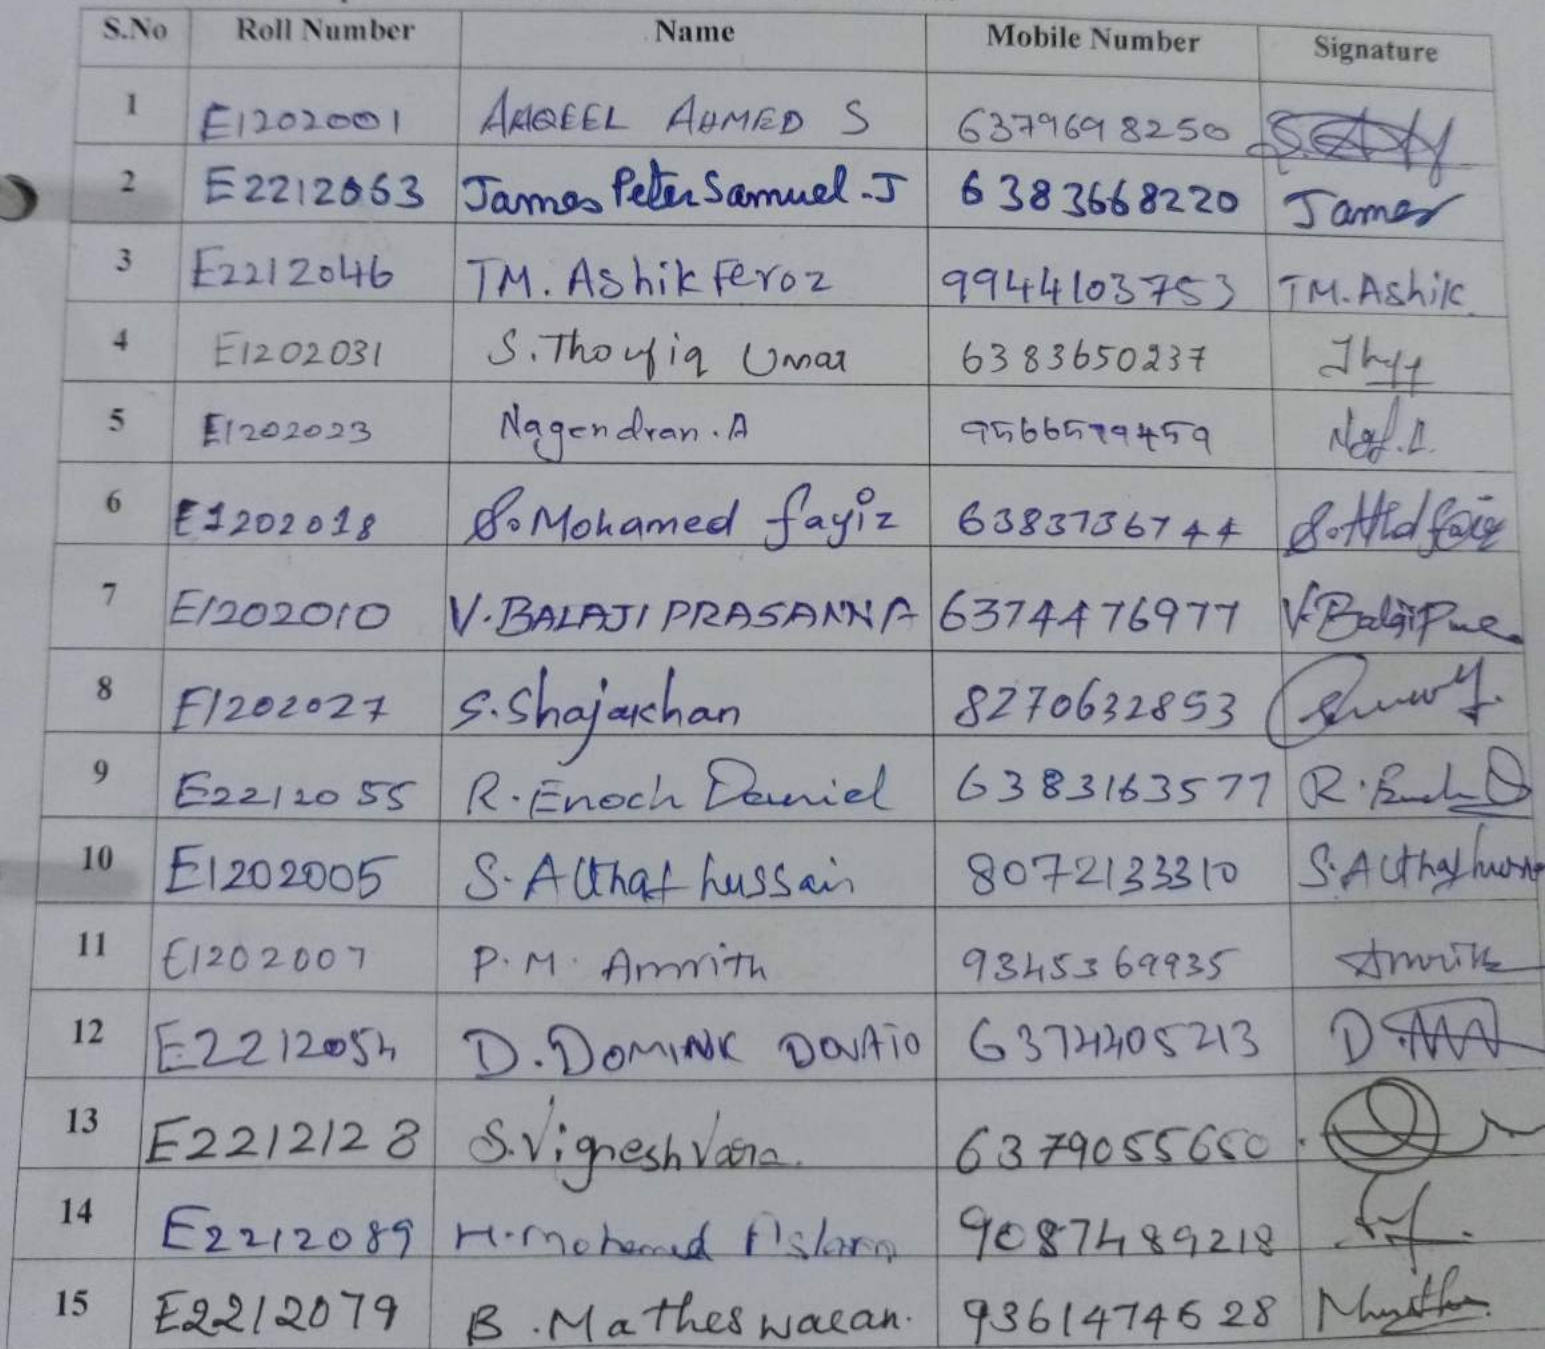 S.No Roll Number Name Mobile Number Signature
1 E1202001 AAQEEL AHMED S 6379698250
2 E2212063 James Peter Samuel.J 6383668220 James
3 E2212046 TM. Ashik Feroz 9944103753 TM.Ashik
4 E1202031 S.Thoufiq Umar 6383650237
5 E1202023 Nagendran.A 9566579459
6 E1202018 S.Mohamed fayiz 6383736744
7 E1202010 V.BALAJI PRASANNA 6374476977
8 E1202027 S.Shajakhan 8270632853
9 E2212055 R.Enoch Daniel 6383163577
10 E1202005 S.Althaf hussain 8072133310 S.Althaf
11 E1202007 P.M. Amrith 9345369935 Amrith
12 E2212054 D.DOMINIK 6374405213
13 E2212128 S.Vigneshvara. 6379055650
14 E2212089 H.Mohamed Aslam 9087489218
15 E2212079 B.Matheswaran. 9361474628